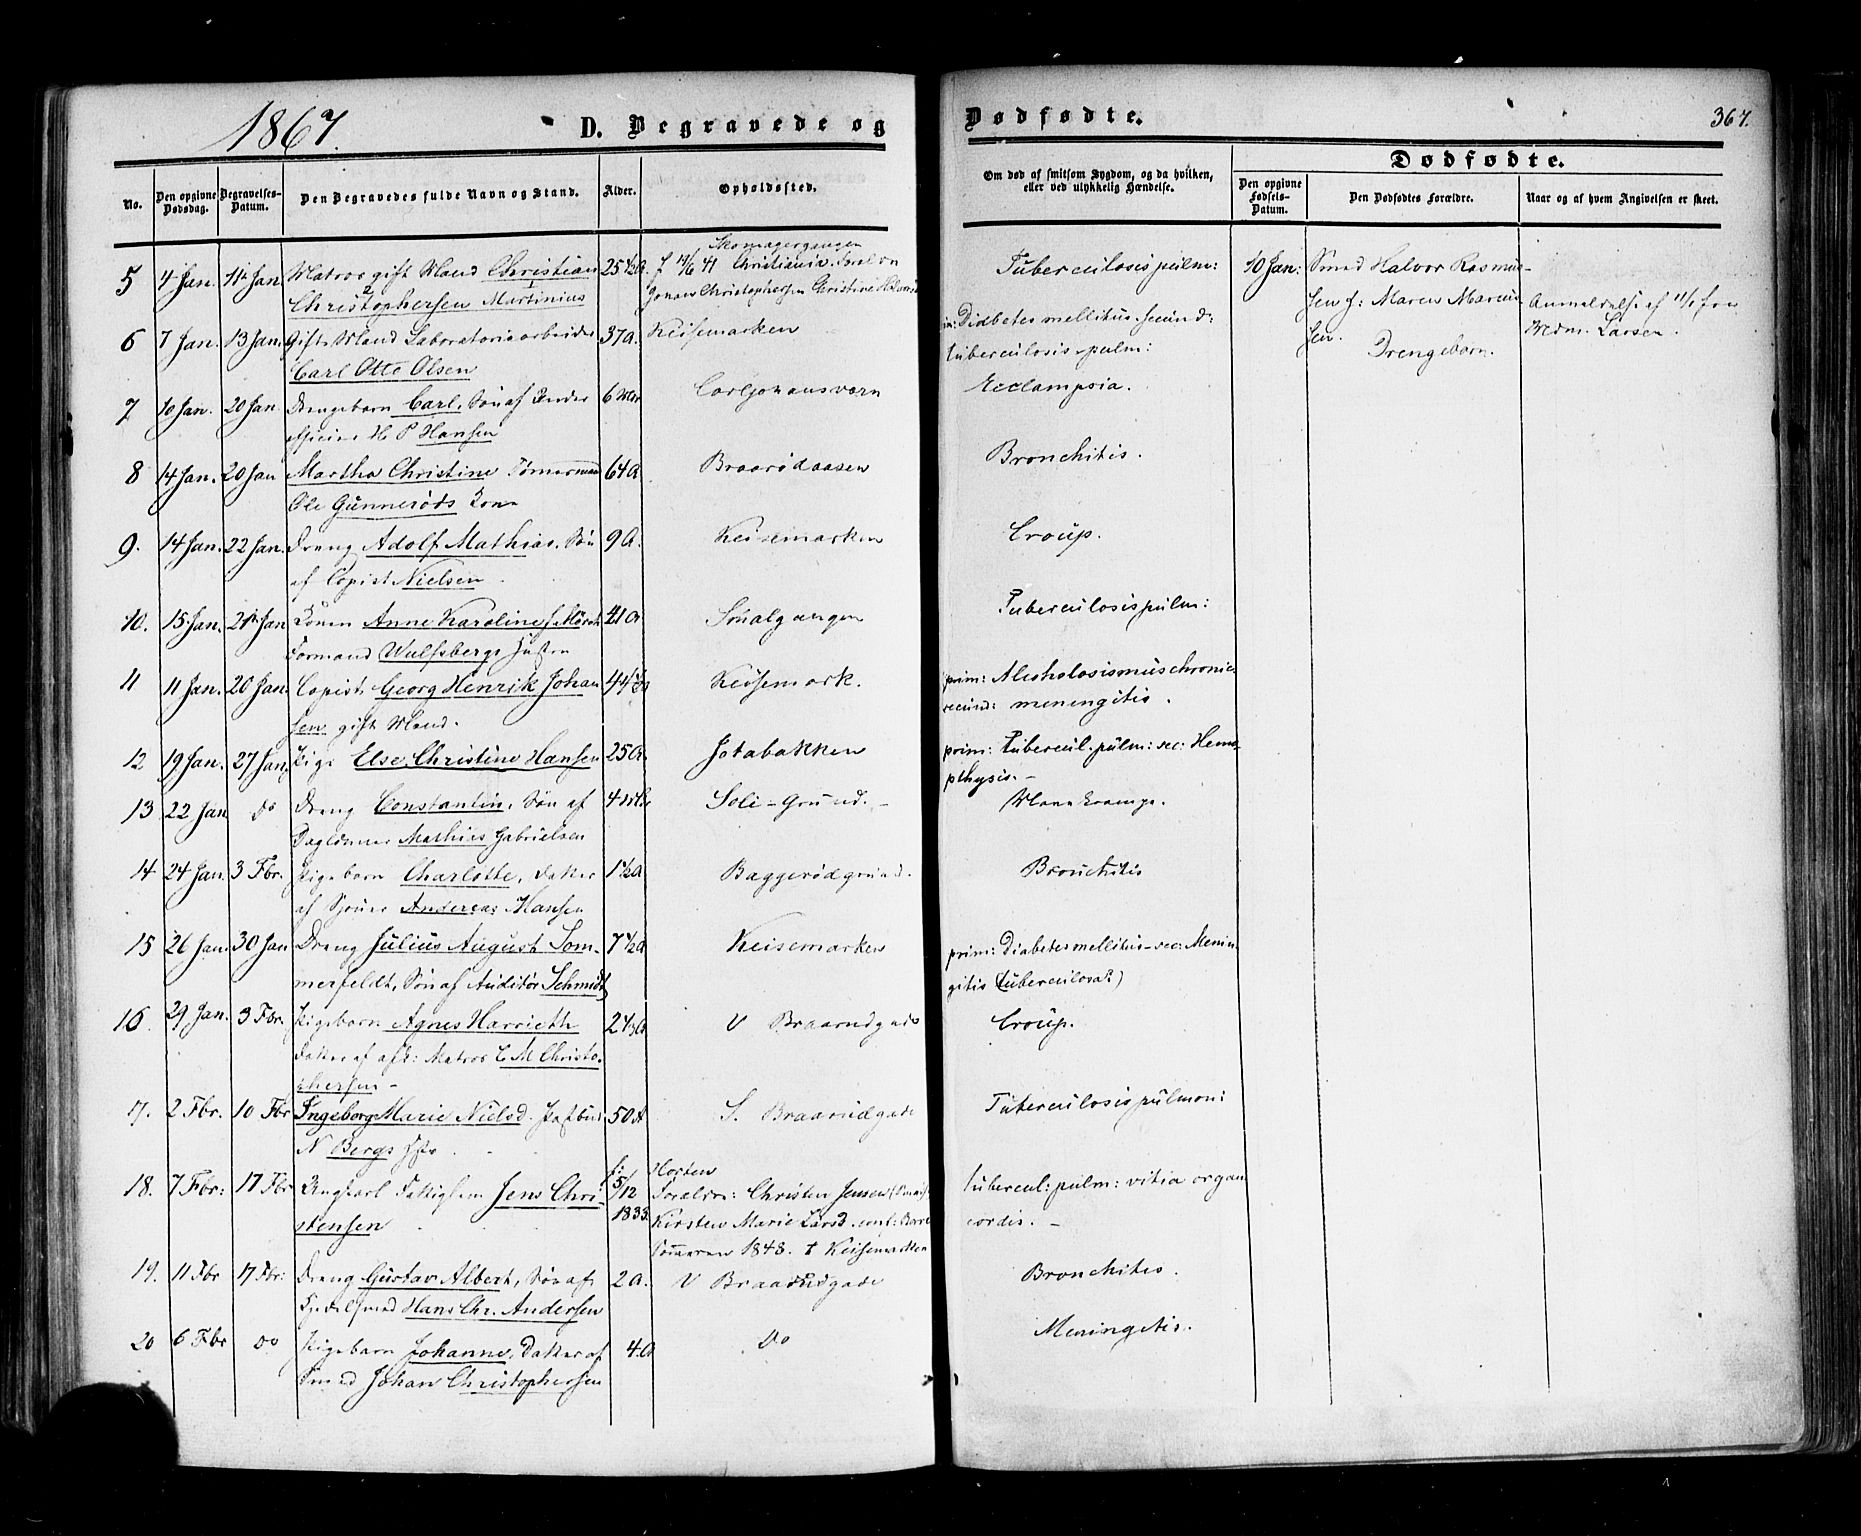 1867.
D. Begravede og
No.
Den opgivne Dødsdag.
Begravelses-Datum.
Den Begravedes fulde Navn og Stand.
Alder.
Opholdssted.
5 4 Jan. 14 Jan Matros gift Mand Christian 25½ A. Skomagergangen
Christophersen Martinius
6 7 Jan. 13 Jan. Gift Mand Laboratoriearbeider 37 a. Keisemarken
Carl Otto Olsen
7 10 Jan. 20 Jan. Drengebarn Carl, Søn af Under 6 Carljohansværn
officier H P Hansen
8 14 Jan. 20 Jan Martha Christine Tømmermand 64 A Braarødaasen
Ole Gunnerøds Kone
9. 14 Jan. 22 Jan. Dreng Adolf Mathias, Søn 9 A. Keisemarken
af Copist Nielsen
10. 15 Jan. 21 Jan Konen Anne Karoline 41 A Smalgangen
Formand Wulfsbergs Hustru
11 11 Jan. 20 Jan. Copist Georg Henrik Johan 44 Keisemark.
sen gift Mand.
12 19 Jan. 27 Jan. Pige Else Christine Hansen 25 A. Jotabakken
13 22 Jan Do Dreng Constantin, Søn af 4 Soli-Grund.-
Daglønner Mathias Gabrielsen
14 24 Jan. 3 Fbr. Pigebarn Charlotte, Datter 1½ A Baggerødgrund.
af Andreas Hansen
15 26 Jan. 30 Jan Dreng Julius August Som- 7½ A Keisemarken
merfeldt, Søn af Auditør Schmidt
16. 29 Jan. 3 Fbr. Pigebarn Agnes Harrieth 2 A V Braarudgade
Datter af afd: Matros C M Christo-
phersen -
17. 2 Fbr. 10 Fbr Ingeborg Marie Nielsd. Postbud 50 A S. Braarudgade
N Bergs
18. 7 Fbr: 17 Fbr Ungkarl Fattiglem Jens Chri- f: 5/12 1833. Horten
stensen
Forældre: Christen Jensen
Kirsten Marie Larsd.
1848. † Keisemarken
19. 11 Fbr 17 Fbr: Dreng Gustav Albert, Søn af 2 A. V Braarudgade
Hans Chr. Andersen
20 6 Fbr Do Pigebarn Johanne, Datter af 4. A Do
Smed Johan Christophersen
Dødfødte.
367.
Om død af smitsom Sygdom, og da hvilken,
eller ved ulykkelig Hændelse.
Dødfødte.
Den opgivne Fødsels-Datum.
Den Dødfødtes Forældre.
Naar og af hvem Angivelsen er skeet.
Tuberculosis pulm: 10 Jan: Smed Halvor Rasmus-
sen Maren Marcus Anmeldelse af 11/1 fra
sen. Mdm. Larsen.
Drengebarn.
Diabetes mellitus. secund:
tuberculosis pulm:
Ecclampsia.
Bronchitis.
Croup.
Tuberculosis pulm:
prim: Alcoholosismus chronic.
secund: meningitis.
prim: tubercul. pulm: sec: Hemo-
pthysis.-
Mavekrampe.
Bronchitis
prim: Diabetes mellitus - sec: Menin-
gitis (tuberculosa?)
Croup.
Tuberculosis pulmon:
tubercul: pulm: vitia organ
cordis. -
Bronchites.
Meningitis.